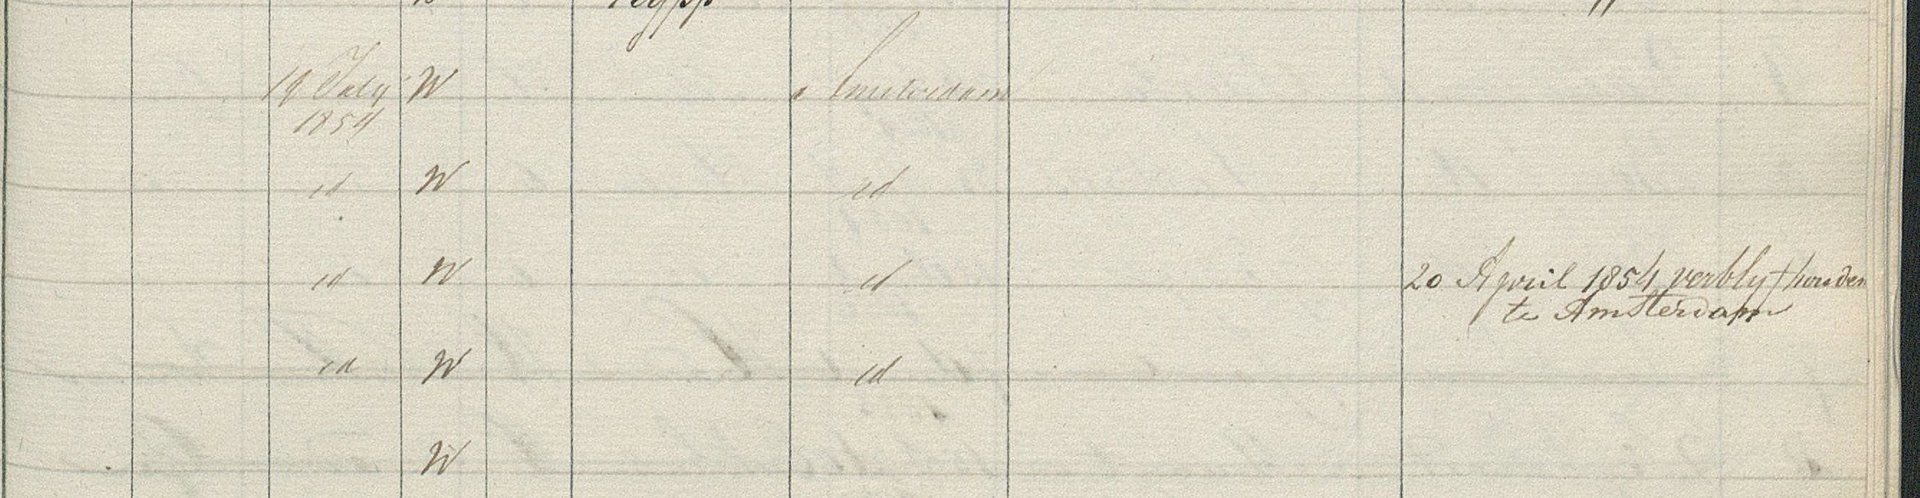 19 July W Amsterdam
1854
id W id
id W id 20 April 1854 verblyf houden
te Amsterdam
id W id
W